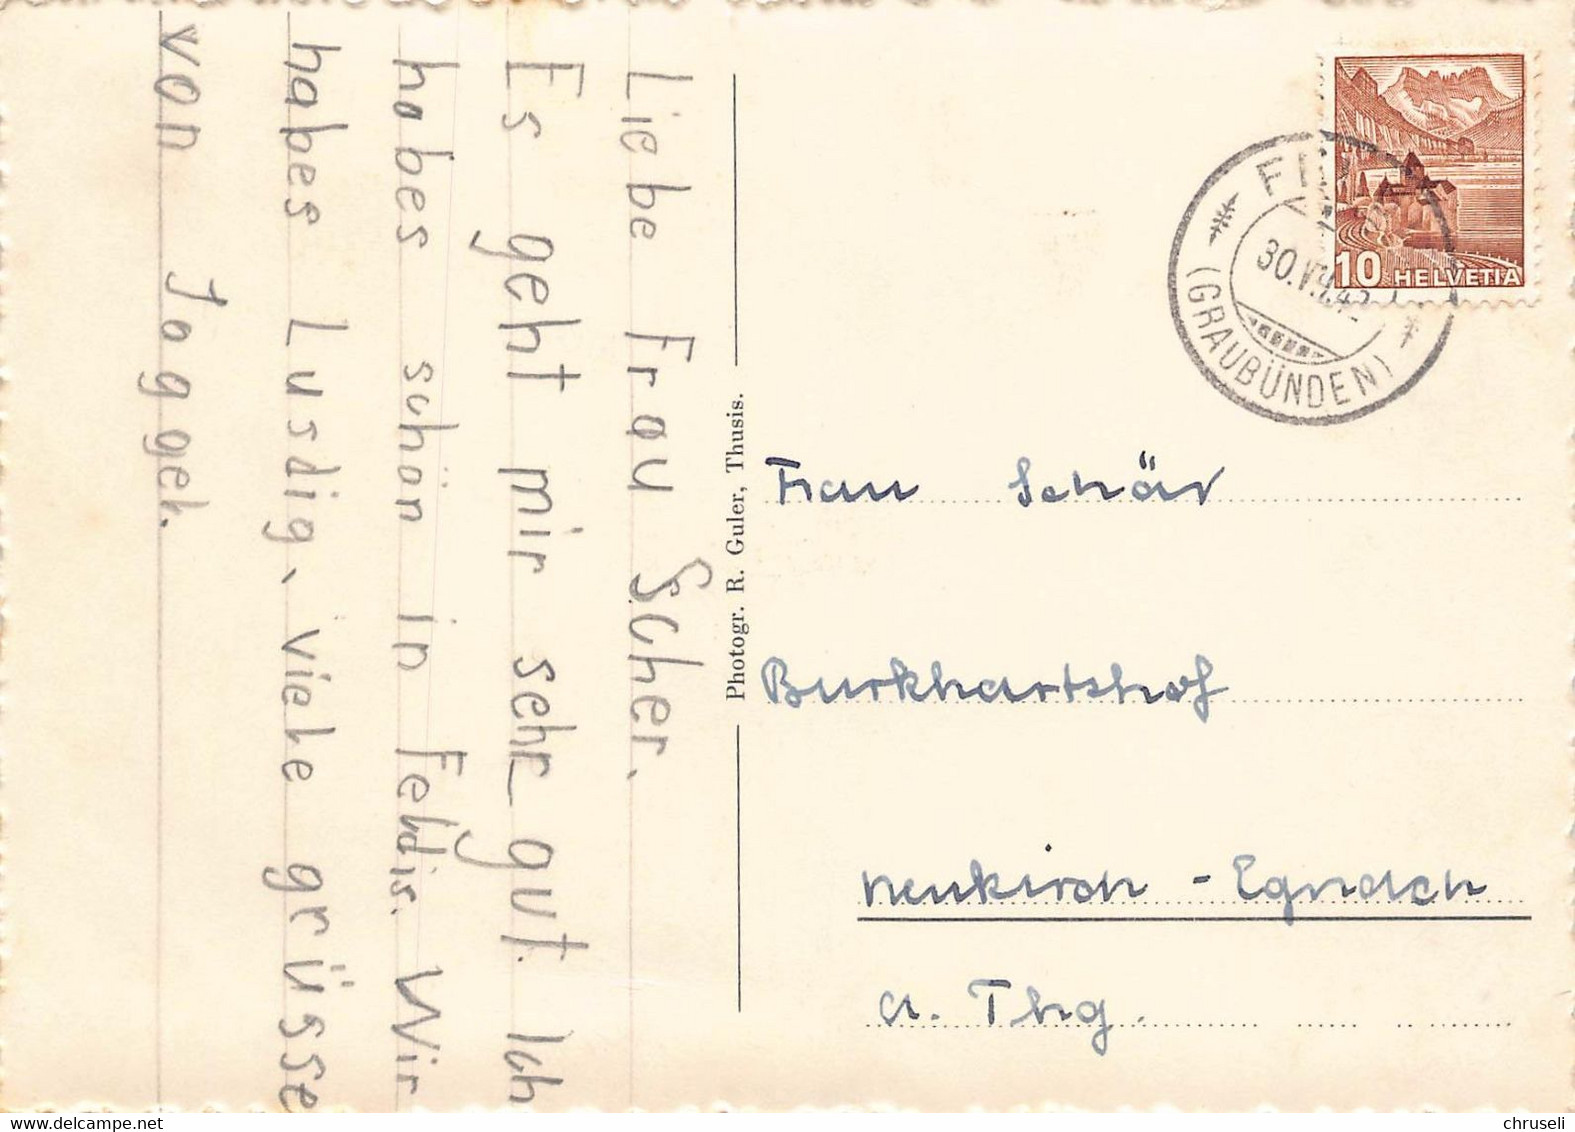 Liebe Frau Scher.
Es geht mir sehr gut. Ich
habes schön in Feldis. Wir
habes Lusdig, viele grüsse
von Jaggeli.
Photogr. R. Guler, Thusis.
10 HELVETIA
30.VII.42
(GRAUBÜNDEN)
Frau Schär
Burkhartshof
Neukirch - Egnach
a. Thg.
www.delcampe.net
chruseli